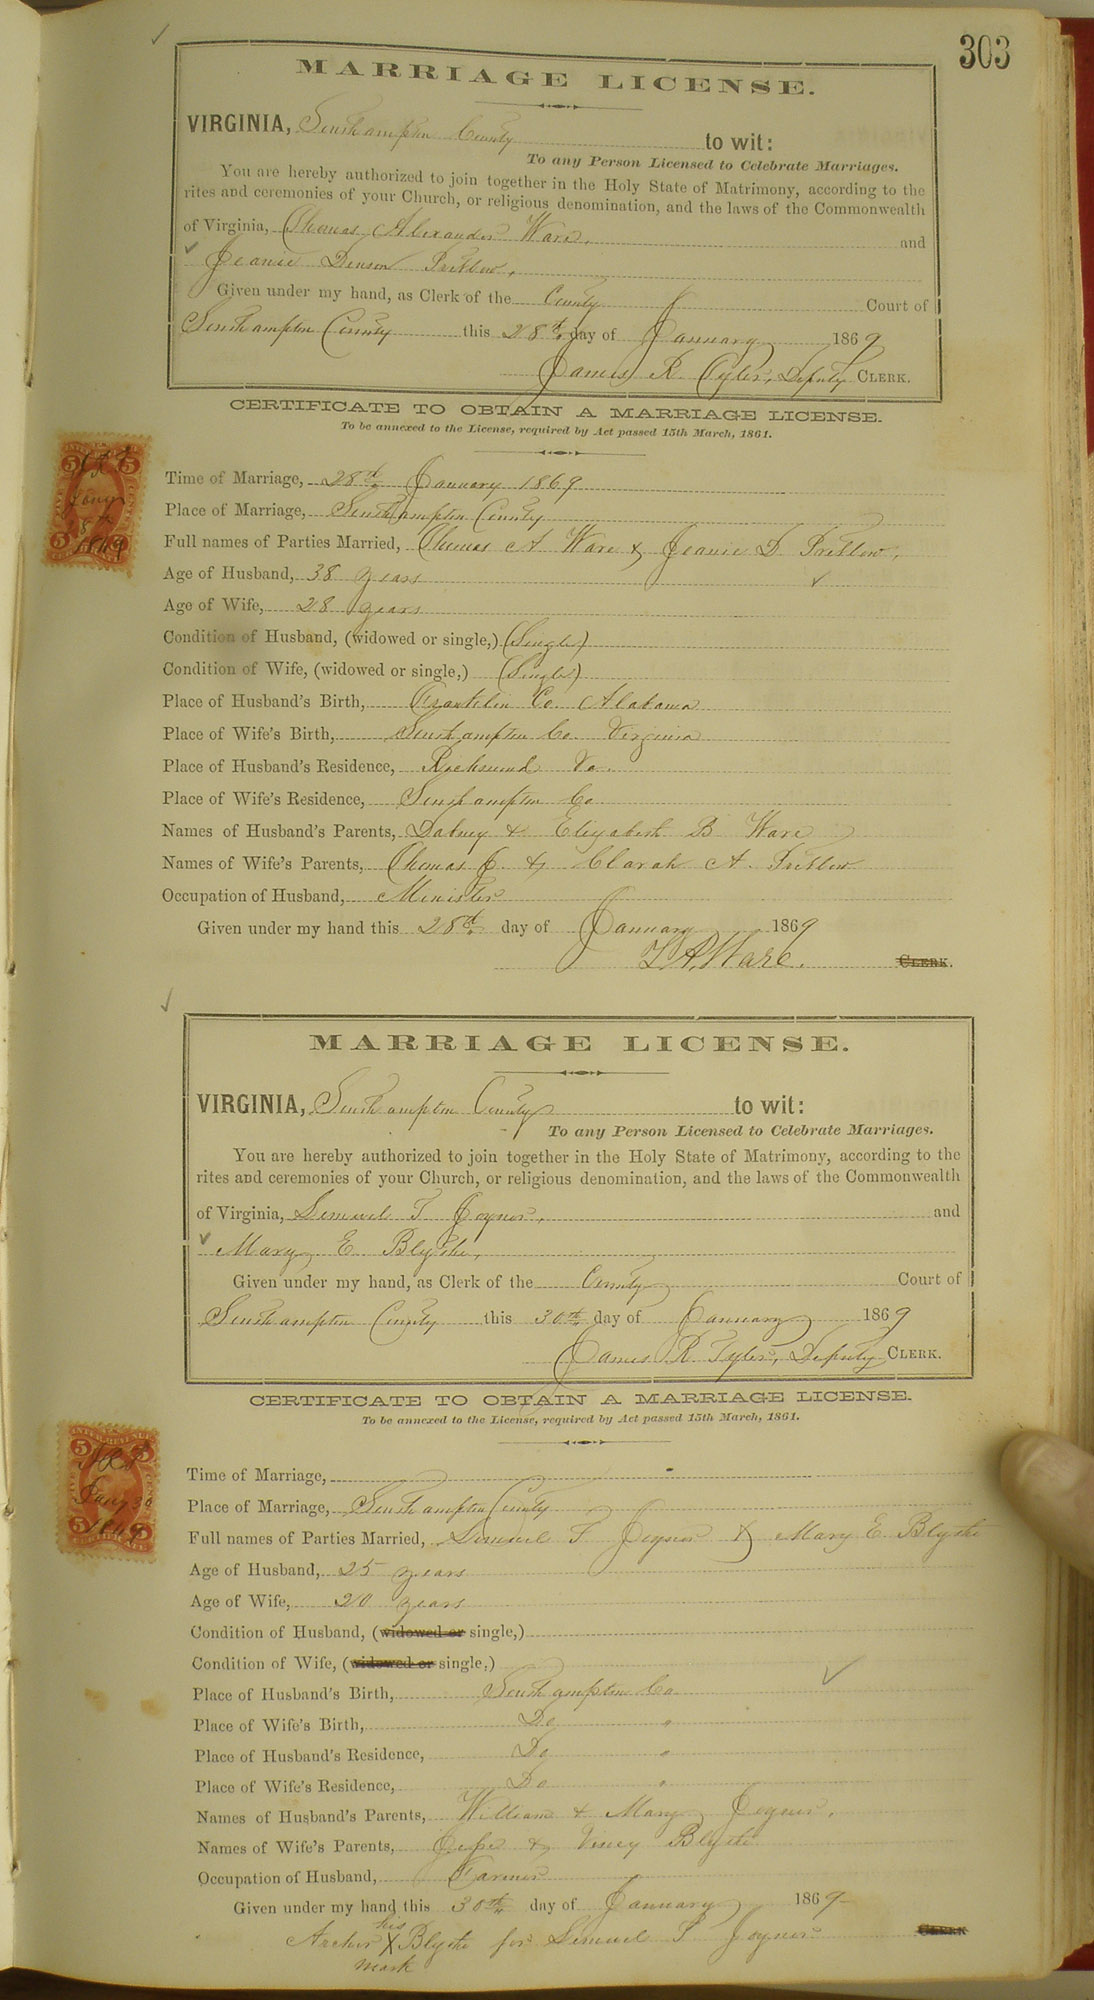 303
MARRIAGE LICENSE.
VIRGINIA, Southampton County to wit:
To any Person Licensed to Celebrate Marriages.
You are hereby authorized to join together in the Holy State of Matrimony, according to the
rites and ceremonies of your Church, or religious denomination, and the laws of the Commonwealth
of Virginia, Thomas Alexander Ware, and
Jeanie Denson Pretlow,
Given under my hand, as Clerk of the County Court of
Southampton County this 28th day of January 1869
James R. Tyler, Deputy CLERK.
CERTIFICATE TO OBTAIN A MARRIAGE LICENSE.
To be annexed to the License, required by Act passed 15th March, 1861.
Time of Marriage, 28th January 1869
Place of Marriage, Southampton County
Full names of Parties Married, Thomas A Ware & Jeanie D Pretlow,
Age of Husband, 38 years
Age of Wife, 28 years
Condition of Husband, (widowed or single,) (Single)
Condition of Wife, (widowed or single,) (Single)
Place of Husband's Birth, Franklin Co. Alabama
Place of Wife's Birth, Southampton Co. Virginia
Place of Husband's Residence, Richmond Va.
Place of Wife's Residence, Southampton Co
Names of Husband's Parents, Dabney & Elizabeth B Ware
Names of Wife's Parents, Thomas J. & Clarah A. Pretlow
Occupation of Husband, Minister
Given under my hand this 28th day of January 1869
T. A. Ware. CLERK.
MARRIAGE LICENSE.
VIRGINIA, Southampton County to wit:
To any Person Licensed to Celebrate Marriages.
You are hereby authorized to join together in the Holy State of Matrimony, according to the
rites and ceremonies of your Church, or religious denomination, and the laws of the Commonwealth
of Virginia, Lemuel T Joyner, and
Mary E Blythe,
Given under my hand, as Clerk of the County Court of
Southampton County this 30th day of January 1869
James R Tyler, Deputy CLERK.
CERTIFICATE TO OBTAIN A MARRIAGE LICENSE.
To be annexed to the License, required by Act passed 15th March, 1861.
Time of Marriage,
Place of Marriage, Southampton County
Full names of Parties Married, Lemuel T Joyner & Mary E. Blythe
Age of Husband, 25 years
Age of Wife, 20 years
Condition of Husband, (widowed or single,)
Condition of Wife, (widowed or single,)
Place of Husband's Birth, Southampton Co
Place of Wife's Birth, Do "
Place of Husband's Residence, Do "
Place of Wife's Residence, Do "
Names of Husband's Parents, William & Mary Joyner,
Names of Wife's Parents, Jesse & Viney Blythe
Occupation of Husband, Farmer
Given under my hand this 30th day of January 1869
his
Archer X Blythe for Lemuel T Joyner CLERK
mark